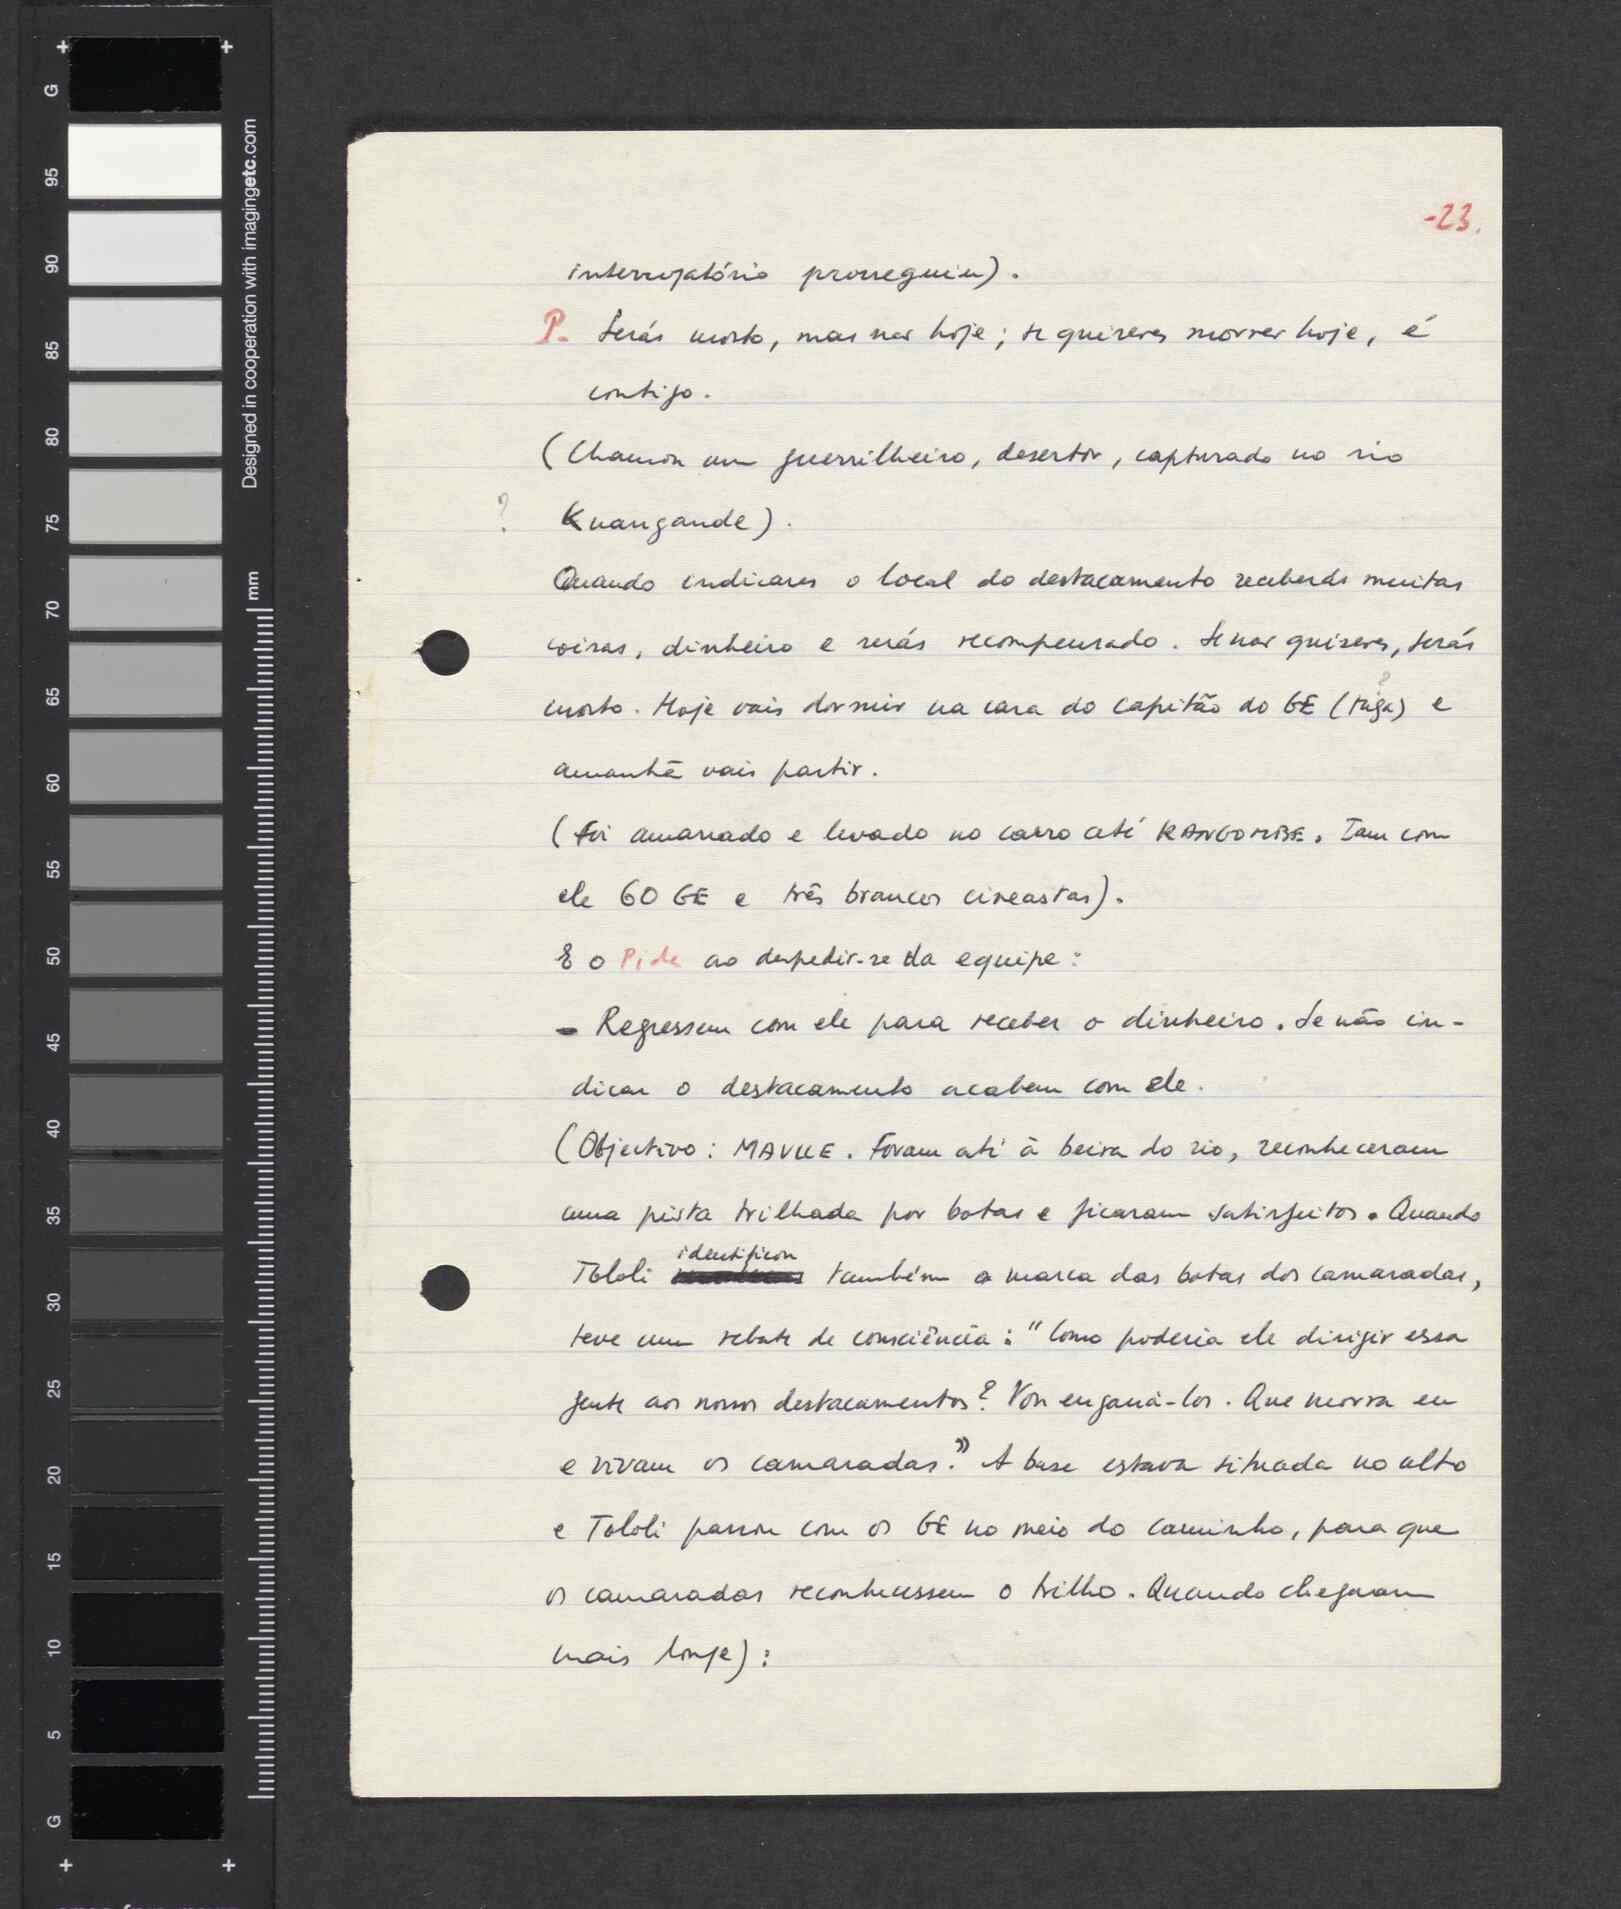 G
95
90
85
80
75
70
65
60
55
50
45
40
35
30
25
20
15
10
5
G
Designed in cooperation with imagingetc.com
mm
-23.
interrogatório prosseguiu).
P. Serás morto, mas não hoje; se quiseres morrer hoje, é
contigo.
(Chamou um guerrilheiro, desertor, capturado no rio
? Kuangande).
Quando indicares o local do destacamento receberás muitas
coisas, dinheiro e serás recompensado. Se não quiseres, serás
?
morto. Hoje vais dormir na casa do capitão do GE () e
amanhã vais partir.
(Foi amarrado e levado no carro até KANGOMBE. Iam com
ele 60 GE e três brancos cineastas).
E o Pide ao despedir-se da equipe:
- Regressem com ele para receber o dinheiro. Se não in-
dicar o destacamento acabem com ele.
(Objectivo: . Foram até à beira do rio, reconheceram
uma pista trilhada por botas e ficaram satisfeitos. Quando
identificou
Tololi também a marca das botas dos camaradas,
teve um rebate de consciência: "Como poderia ele dirigir essa
gente aos nossos destacamentos? Vou enganá-los. Que morra eu
e vivam os camaradas." A base estava situada no alto
e Tololi passou com os GE no meio do caminho, para que
os camaradas reconhecessem o trilho. Quando chegaram
mais longe):